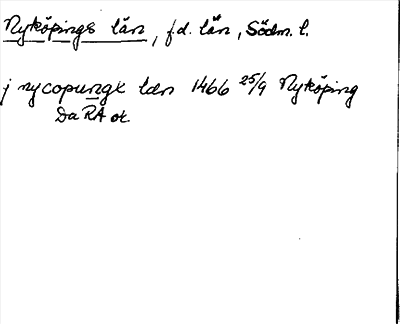 Nyköpings län, f.d. län, Södm. l.
j nycopungx læn 1466 25/9 Nyköping
Da RA or